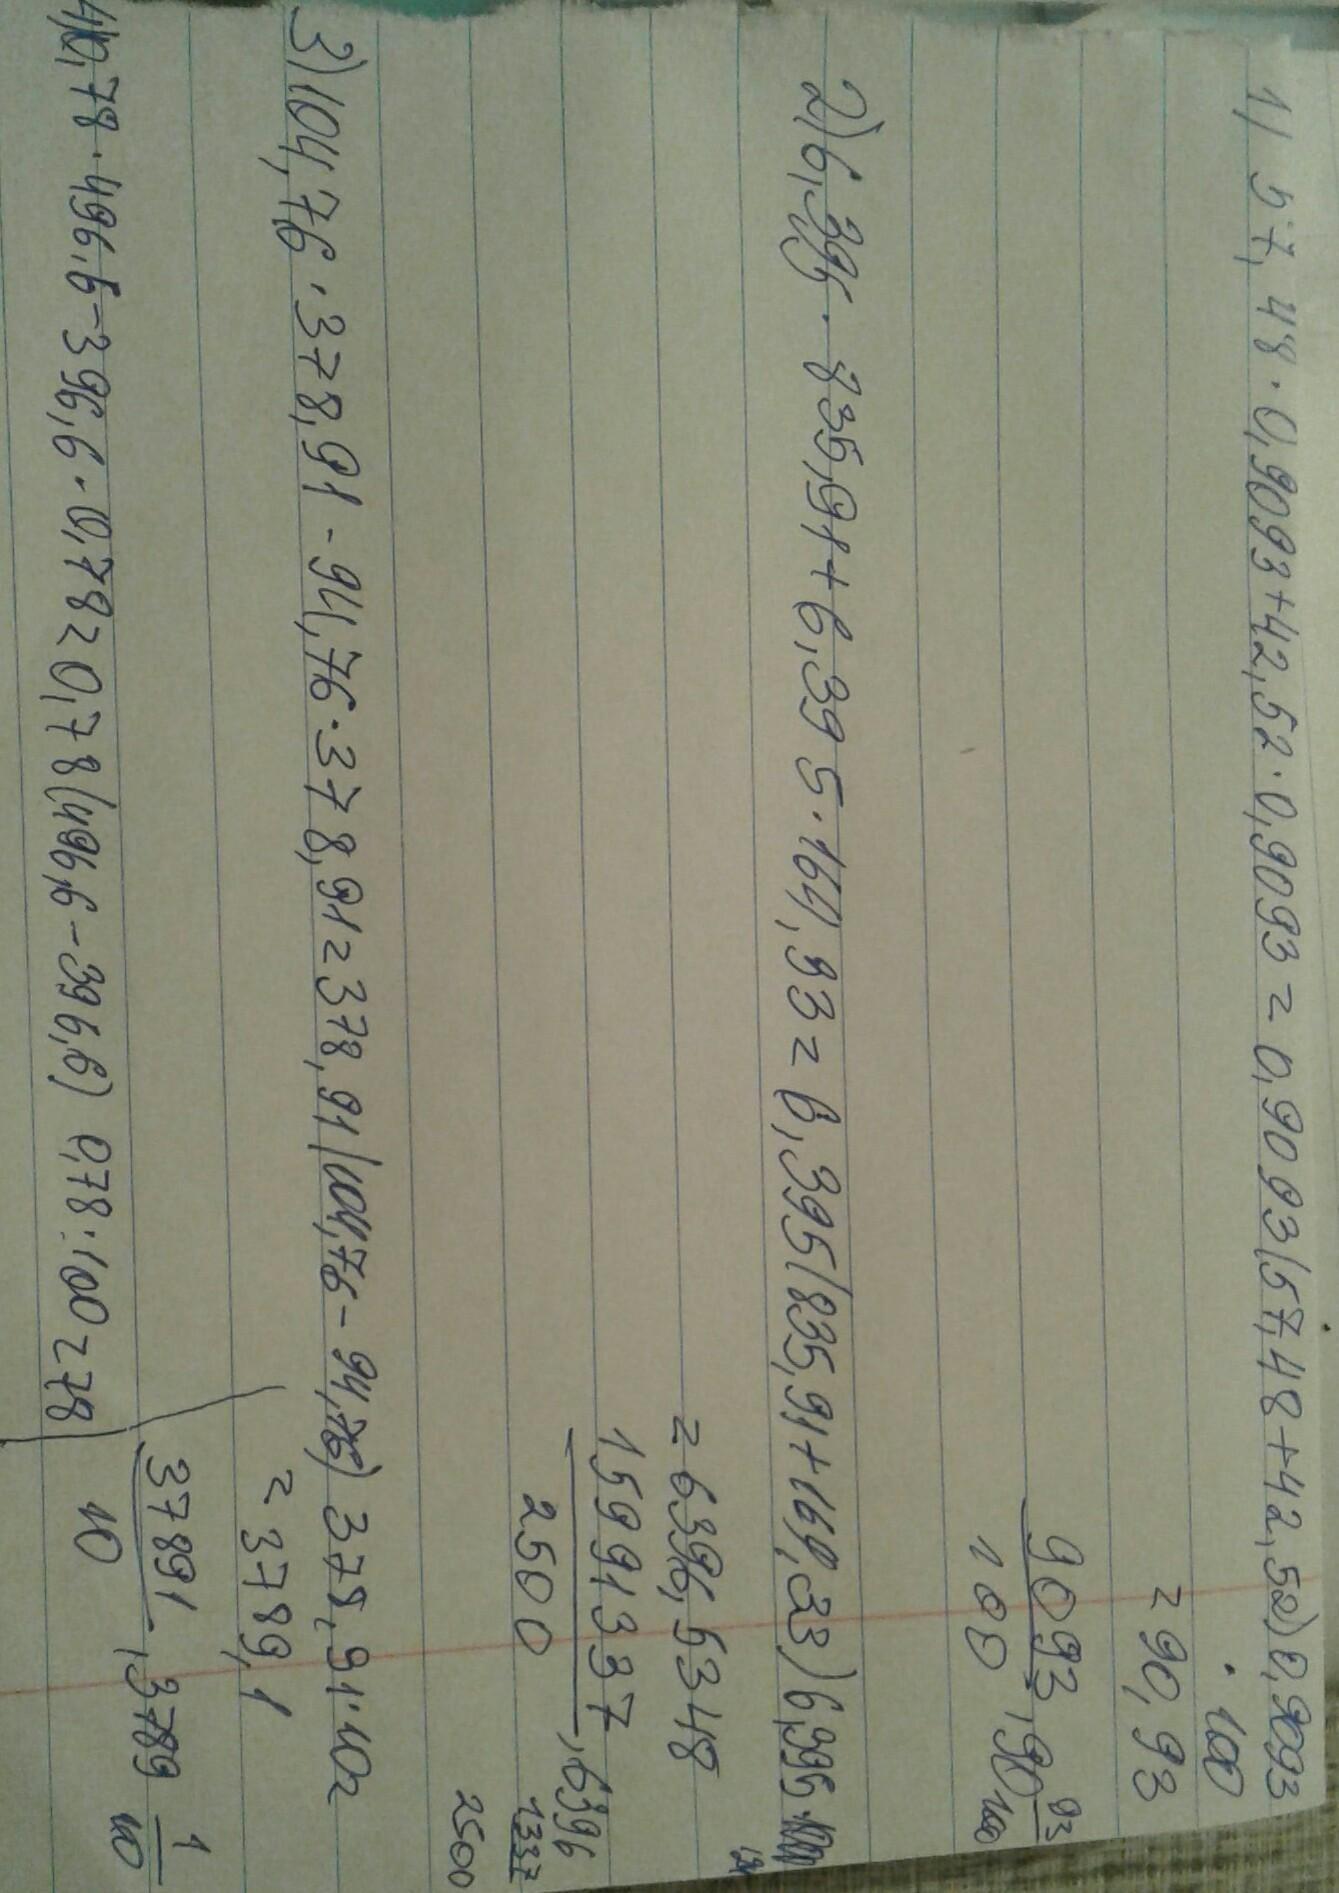 1) 57,48·0,9093+42,52·0,9093=0,9093(57,48+42,52)0,9093
·100
=90,93
9093/100, 90 93/100
2) 6,395·835,91+6,395·164,33=6,395(835,91+164,33)6,395
=6396,5348
15991337/2500, 6396 1337/2500
3) 104,76·378,91-94,76·378,91=378,91(104,76-94,76) 378,91·10=
=3789,1
37891/10, 3789 1/10
4) 0,78·496,6-396,6·0,78=0,78(496,6-396,6) 0,78·100=78